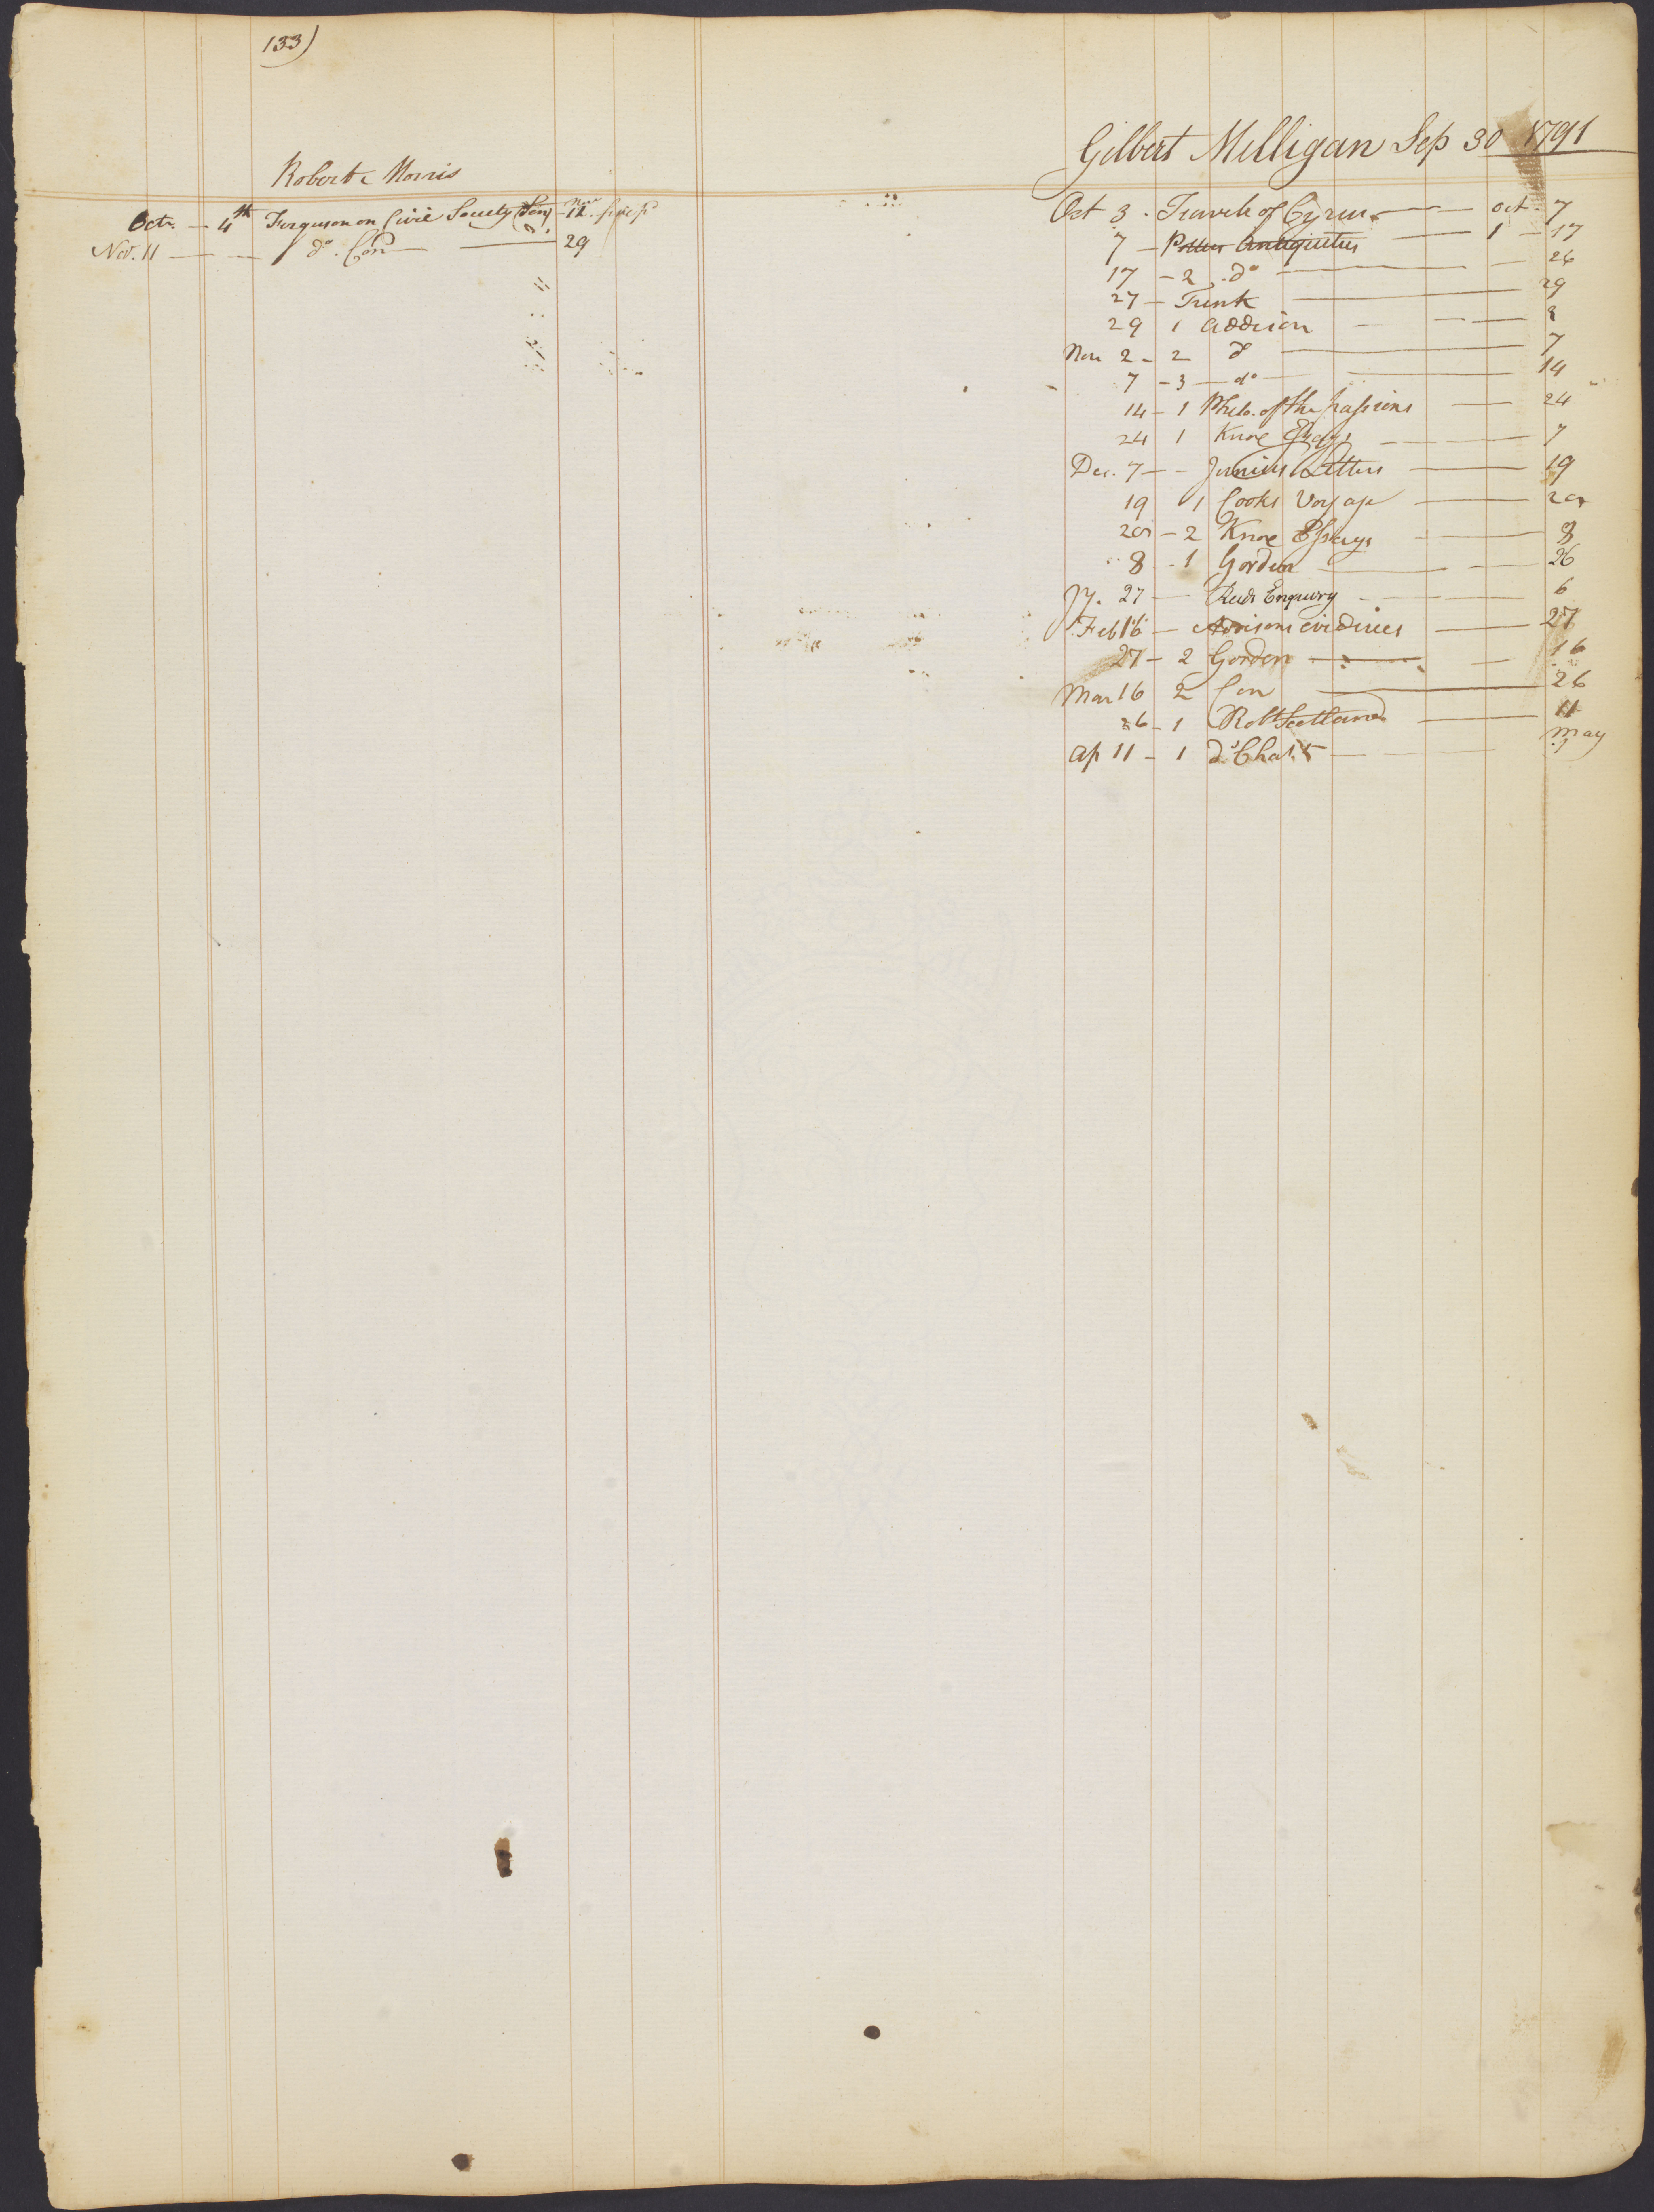 133)
Robert Morris
Octr. — 4th Ferguson on Civil Society Nov 12
Nov. 11 — — do. Con — 29
Gilbert Milligan Sep 30 1791
Oct 3 - Travels of Cyrus — — Oct - 7
7 — Potters Antiquities — 1 — 17
17 — 2 . do — — 26
27 — Trenk — 29
29 1 Addison — — — 2
Nov 2 - 2 do — 7
7 - 3 — do — 14
14 - 1 Philo. of the passions — 24
24 1 Knox Essays — — — 7
Dec. 7 — - Junius Letters — 19
19 1 Cooks Voyage — 20
20 - 2 Knox Essays — — 8
8 - 1 Gordon — — — 26
27 — Reids Enquiry — — — 6
Feb 16 — Addisons evidinces — 27
27 - 2 Gordon — — 16
Mar 16 2 Con — 26
26 - 1 Robt Scotland — 11
Ap 11 - 1 do Chas. 5 — — — May
1